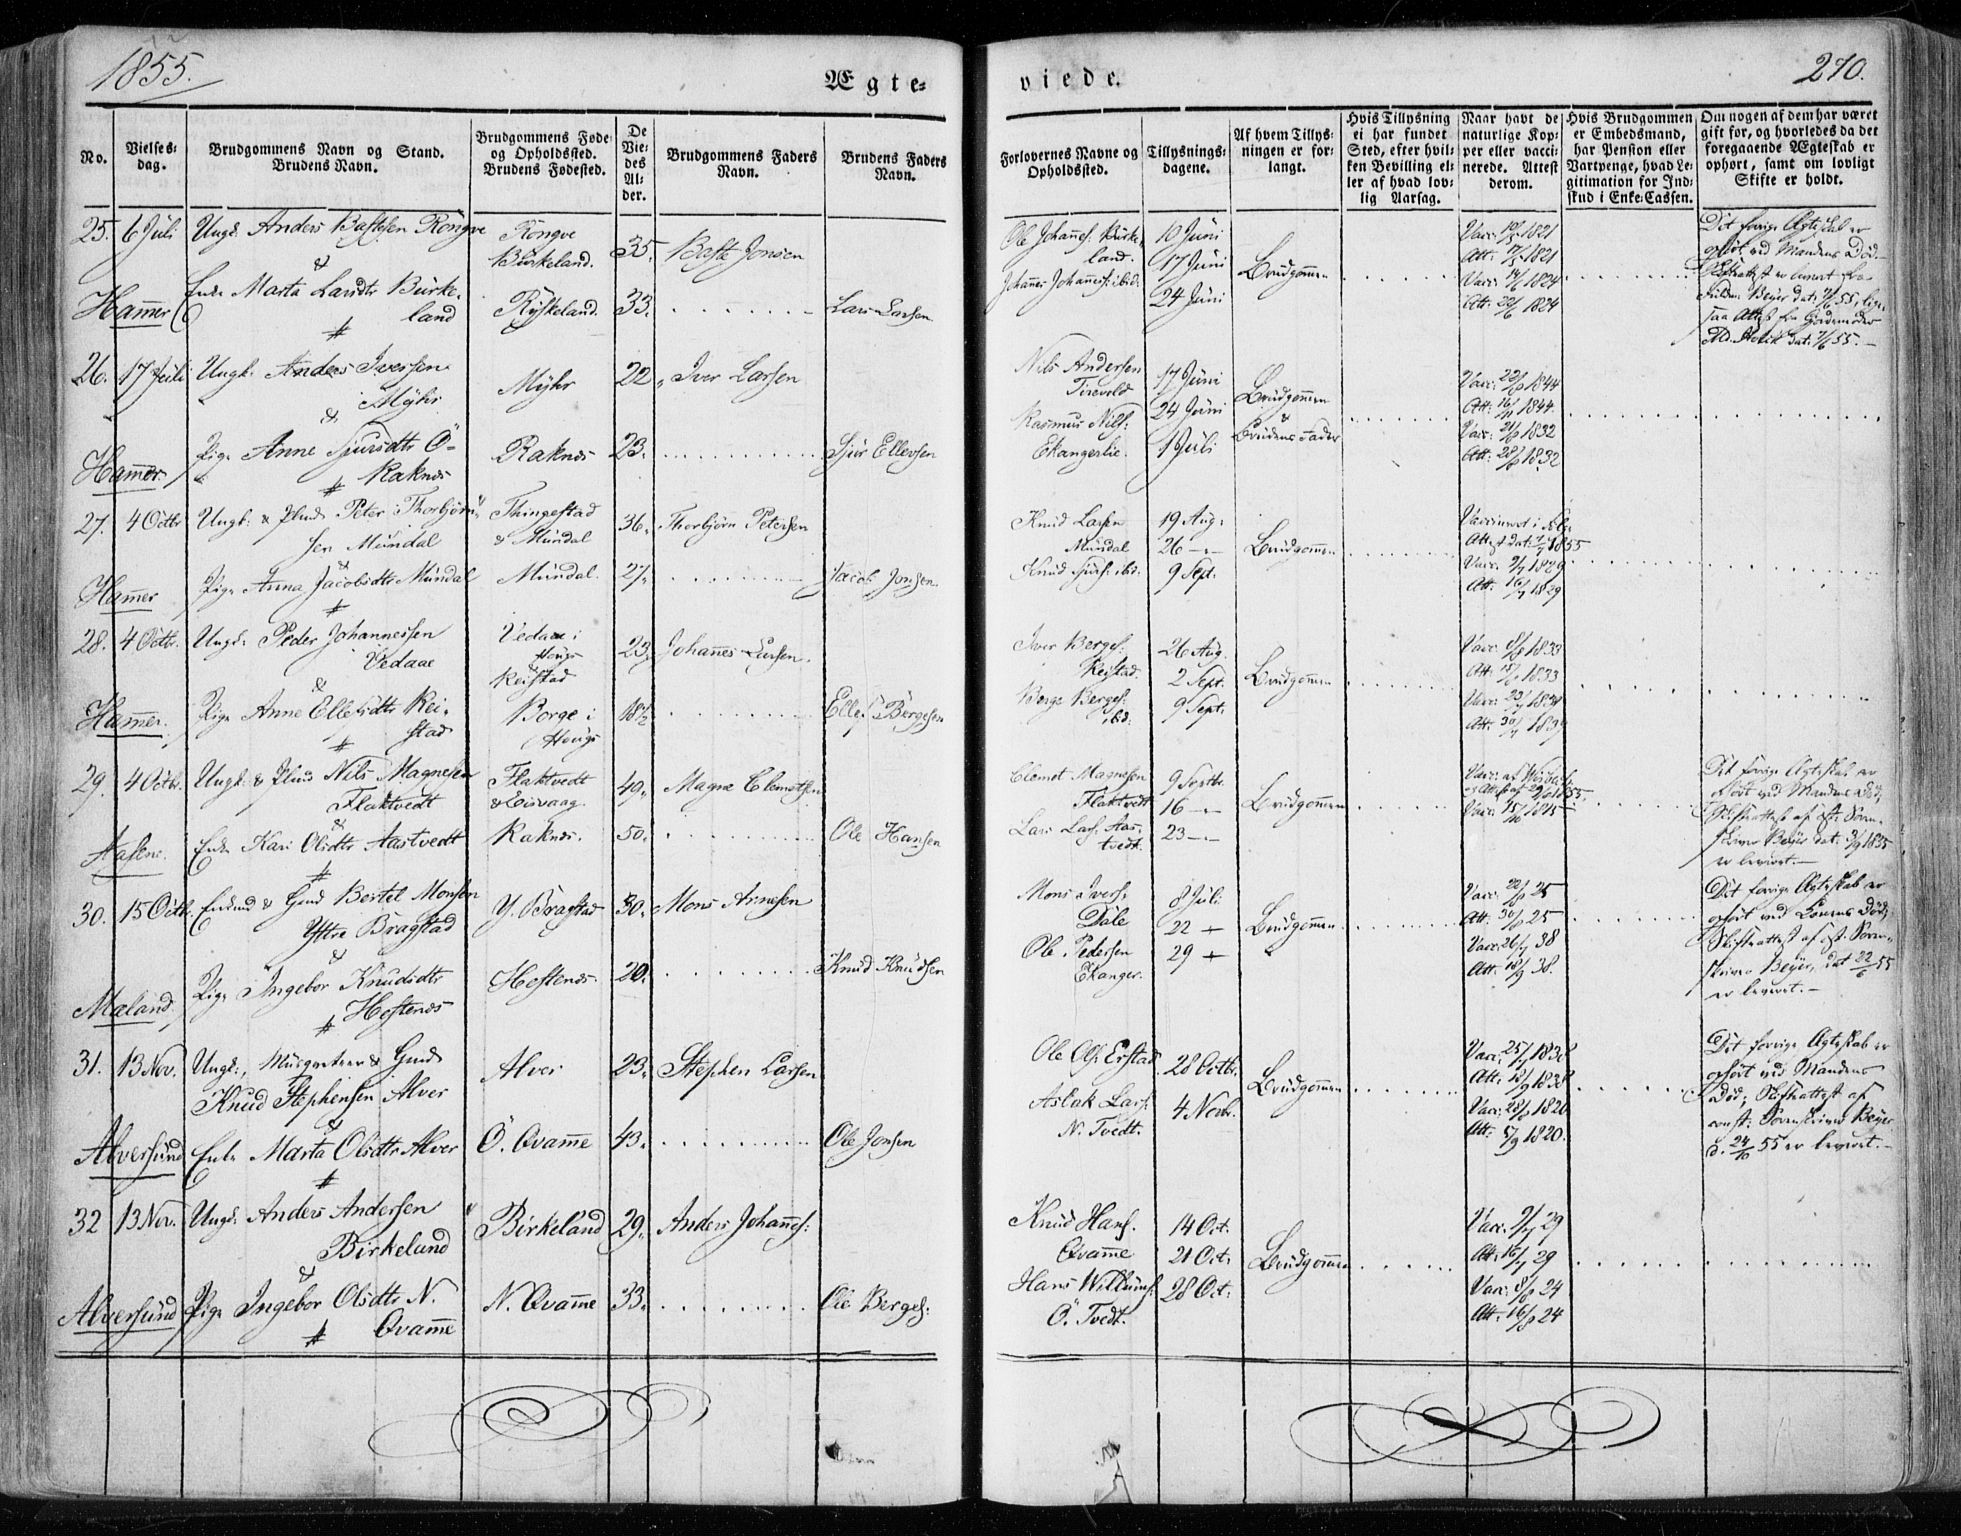 1855.
Ægte-
viede.
270.
No.
Vielses-
dag.
Brudgommens Navn og Stand.
Brudens Navn.
Brudgommens Føde-
og Opholdssted.
Brudens Fødested.
De
Vie-
des
Al-
der.
Brudgommens Faders
Navn.
Brudens Faders
Navn.
Forlovernes Navne og
Opholdssted.
Tillysnings-
dagene.
Af hvem Tillys-
ningen er for-
langt.
Hvis Tillysning
ei har fundet
Sted, efter hvil-
ken Bevilling el-
ler af hvad lov-
lig Aarsag.
Naar havt de
naturlige Kop-
per eller vacci-
nerede. Attest
derom.
Hvis Brudgommen
er Embedsmand,
har Pension eller
Vartpenge, hvad Le-
gitimation for Ind-
skud i Enke-Cassen.
Om nogen af dem har været
gift før, og hvorledes da det
foregaaende Ægteskab er
ophørt, samt om lovligt
Skifte er holdt.
25. 6 Juli Ungk. Anders Bastesen Röngve
&
Enke Marta Larsdtr Birke-
land
Hamer
Röngve
Birkeland.
35. Baste Jonsen
33. Lars Larsen
Ole Johannes. Birke-
land.
Johannes Johannes: ibid.
10 Juni
17 Juni
24 Juni
Brudgommen
Vacc. 1821
Att. 1821
Vacc. 1824
Att. 1824
Det forrige Ægteskab er
ophört ved Mandens Död.
26. 17 Juli Ungk. Anders Iversen
Myhr
&
Pige Anne Sjursdtr Ö-
Raknes
Hamer.
Myhr 22 Iver Larsen
Raknes 23. Sjur Ellevsen
Nils Andersen
Rasmus Nils:
Ekangerlie.
17 Juni
24 Juni
1 Juli
Brudgommen
&
Brudens Fader
Vacc. 1844
Att. 1844.
Vacc. 1832
Att. 1832
27. 4 Octbr Ungk. & Peter Thorbjörn-
sen Mundal
&
Pige Anna Jacobsdtr Mundal
Hamer
Thingestad
& Mundal
Mundal.
36. Thorbjörn Petersen
27. Jacob Jonsen.
Knud Larsen
Mundal
Knud Sjurs: ibid.
19 Aug.
26 -"-
9 Sept.
Brudgommen
1855
Vacc. 1829
Att. 1829
28. 4 Octbr. Ungk. Peder Johannessen
Vedaae
&
Pige Anne Ellefsdtr Rei-
stad
Hamer.
Vedaae i
Hougs
&
Reistad
Borge i
Hougs
23. Johannes Larsen.
18½ Ellef Börgesen
Iver Berges:
Reistad.
Borge Berges:
ibid.
26 Aug.
2 Sept.
9 Sept.
Brudgommen
Vacc. 1833
Att. 1833
Vacc.
Att.
29. 4 Octbr. Ungk. & Nils Magnesen
Flaktvedt
&
Enke Kari Olsdtr Aastvedt
Aasene.
Flaktvedt
& Eisvaag.
Raknes.
49. Magne Clemetsen
50. Ole Hansen
Clemet Magnesen
Flaktvedt
Lars Lars: Aas-
tvedt.
9 Septbr.
16 -"-
23 -"-
Brudgommen
Det forrige Ægteskab er
ophört ved Mandens Död,
Skifteattest af cst. Soren-
skriver Beyer dat: 1855
er leveret.-
30. 15 Octb. Enkmd & Gmd Bertel Monsen
Yttre Bragstad
&
Pige Ingebor Knudsdtr
Hestenes
Mæland.
Y. Bragstad
Hestenes.
30. Mons Arnesen
20. Knud Knudsen
Mons Ivers:
Dale
Ole Pedersen
Ekanger.
8 Juli
22 -"-
29 -"-
Brudgommen
Vacc. 25
Att. 25
Vacc. 38
Att. 38.
Det forrige Ægteskab er
ophört ved Konens Död;
Skifteattest af cst. Soren-
skriver Beyer, dat 22/6 55
er leveret.-
31. 13 Nov. Ungk., Musqueteer & Gmd
Knud Stephensen Alver
&
Enke Marta Olsdtr Alver
Alversund
Alver
Ö. Qvamme
23. Stephen Larsen
43. Ole Jonsen
Ole Ols: Erstad
Aslak Lars:
N. Tvedt.
28 Octbr.
4 Novbr.
Brudgommen
Vacc. 1838
Att. 1838
Vacc. 1820
Att. 1820.
Det forrige Ægteskab er
ophört ved Mandens
Död; Skifteattest af
const: Sorenskriver Beyer
d. 55 er leveret.-
32 13 Nov. Ungk. Anders Andersen
Birkeland
&
Pige Ingebor Olsdtr N.
Qvamme
Alversund
Birkeland
N. Qvamme
29. Anders Johannes:
33. Ole Berges:
Knud Hans:
Qvamme
Hans Willums:
Ö. Tvedt.
14 Oct.
21 Oct.
28 Oct:
Brudgommen
Vacc. 29
Att. 29
Vacc. 24
Att. 24